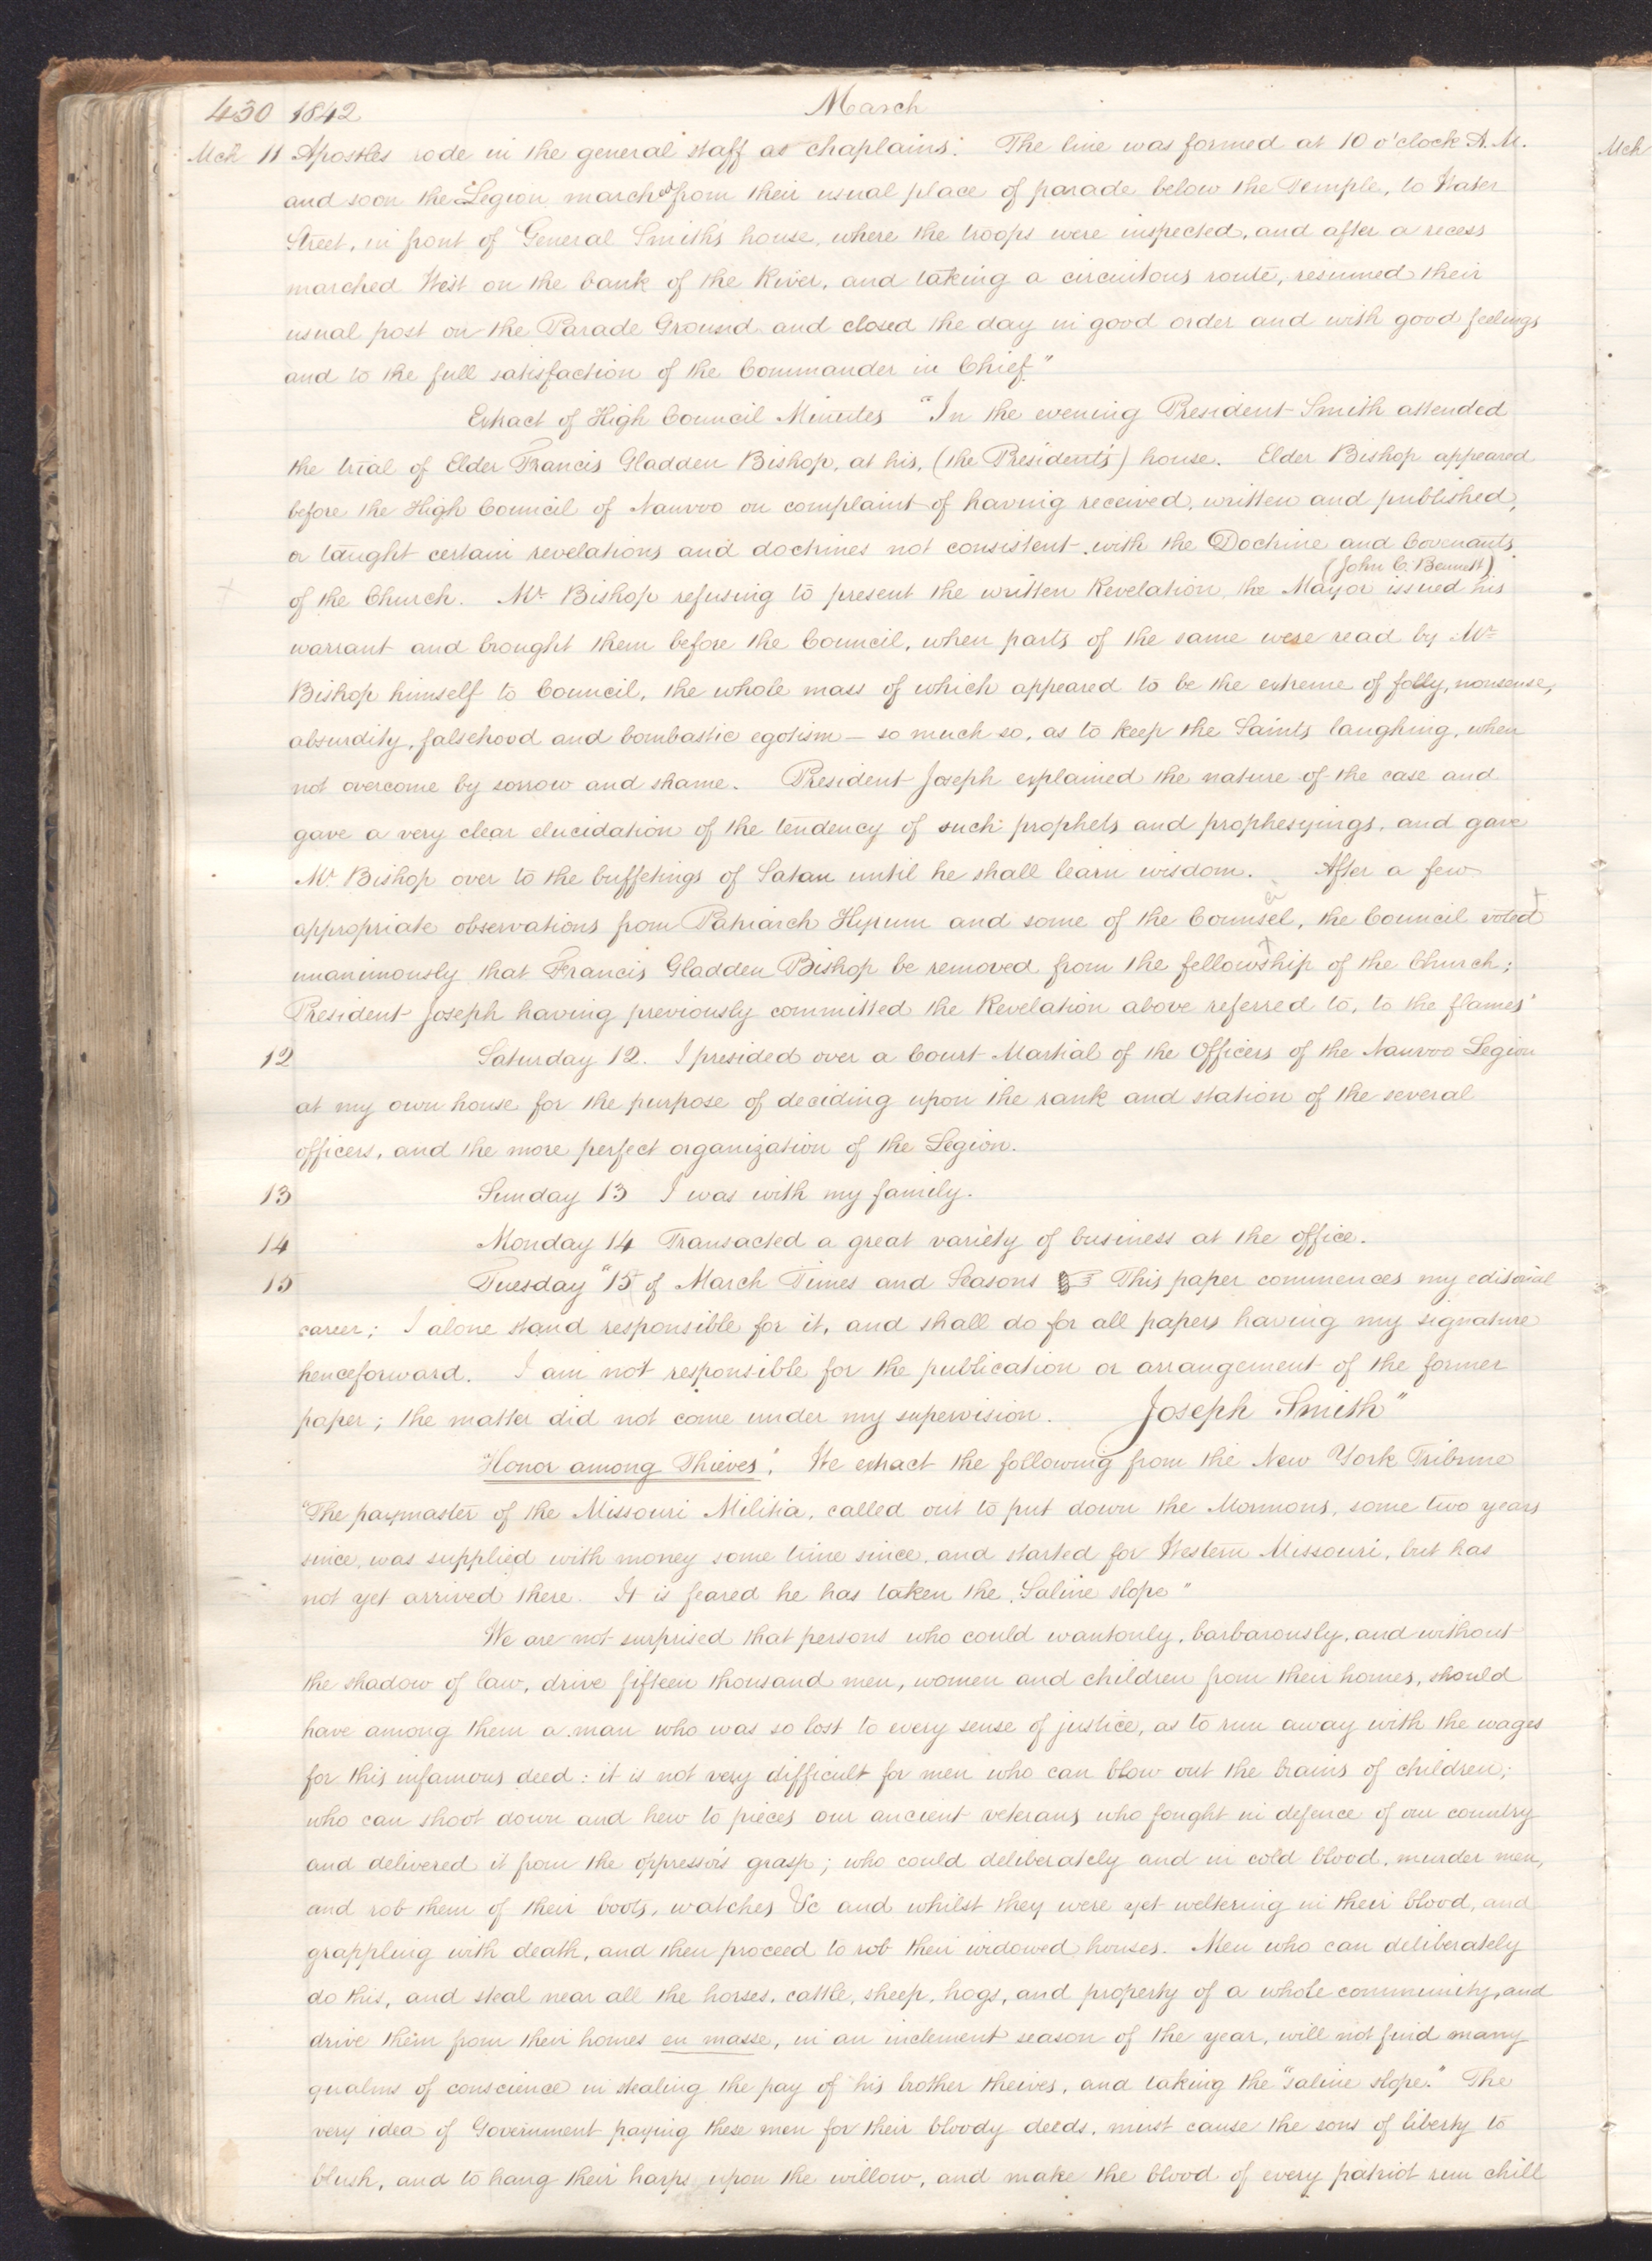 430 1842 March
Mch 11 Apostles rode in the general staff as chaplains. The line was formed at 10 o'clock A.M. Mch
and soon the Legion marched from their usual place of parade below the Temple, to Water
Street, in front of General Smith's house, where the troops were inspected, and after a recess
marched West on the bank of the River, and taking a circuitous route, resumed their
usual post on the Parade Ground and closed the day in good order and with good feelings
and to the full satisfaction of the Commander in Chief."
Extract of High Council Minutes "In the evening President Smith attended
the trial of Elder Francis Gladden Bishop, at his, (the President's) house. Elder Bishop appeared
before the High Council of Nauvoo on complaint of having received, written and published,
or taught certain revelations and doctrines not consistent with the Doctrine and Covenants
(John C. Bennett)
of the Church. Mr. Bishop refusing to present the written Revelation, the Mayor issued his
warrant and brought them before the Council, when parts of the same were read by Mr.
Bishop himself to Council, the whole mass of which appeared to be the extreme of folly, nonsense,
absurdity, falsehood and bombastic egotism — so much so, as to keep the Saints laughing, when
not overcome by sorrow and shame. President Joseph explained the nature of the case and
gave a very clear elucidation of the tendency of such prophets and prophesyings, and gave
Mr. Bishop over to the buffetings of Satan until he shall learn wisdom. After a few
appropriate observations from Patriarch Hyrum and some of the Counsel, the Council voted
unanimously that Francis Gladden Bishop be removed from the fellowship of the Church;
President Joseph having previously committed the Revelation above referred to, to the flames"
12 Saturday 12. I presided over a Court Martial of the Officers of the Nauvoo Legion
at my own house for the purpose of deciding upon the rank and station of the several
officers, and the more perfect organization of the Legion.
13 Sunday 13 I was with my family.
14 Monday 14 Transacted a great variety of business at the office.
15 Tuesday "15 of March Times and Seasons ☞ This paper commences my editorial
career; I alone stand responsible for it, and shall do for all papers having my signature
henceforward. I am not responsible for the publication or arrangement of the former
paper; the matter did not come under my supervision. Joseph Smith"
"Honor among Thieves". We extract the following from the New York Tribune
"The paymaster of the Missouri Militia, called out to put down the Mormons, some two years
since, was supplied with money some time since, and started for Western Missouri, but has
not yet arrived there. It is feared he has taken the Saline slope"
We are not surprised that persons who could wantonly, barbarously, and without
the shadow of law, drive fifteen thousand men, women and children from their homes, should
have among them a man who was so lost to every sense of justice, as to run away with the wages
for this infamous deed: it is not very difficult for men who can blow out the brains of children;
who can shoot down and hew to pieces our ancient veterans who fought in defence of our country
and delivered it from the oppressor's grasp; who could deliberately and in cold blood, murder men,
and rob them of their boots, watches &c and whilst they were yet weltering in their blood, and
grappling with death, and then proceed to rob their widowed houses. Men who can deliberately
do this, and steal near all the horses, cattle, sheep, hogs, and property of a whole community, and
drive them from their homes en masse, in an inclement season of the year, will not find many
qualms of conscience in stealing the pay of his brother theives, and taking the "saline slope." The
very idea of Government paying these men for their bloody deeds, must cause the sons of liberty to
blush, and to hang their harps upon the willow, and make the blood of every patriot run chill